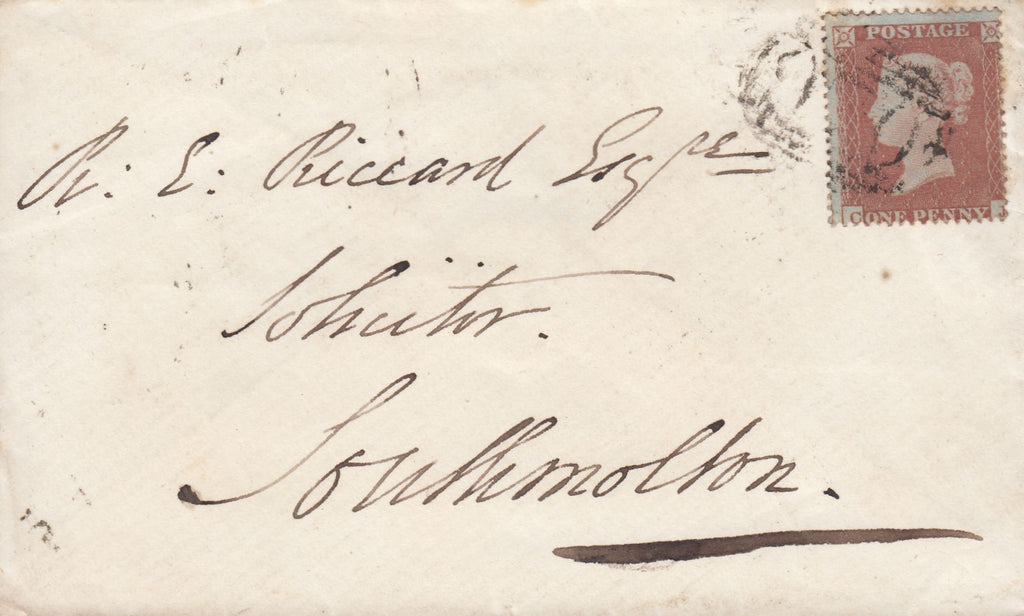 POSTAGE
R: E: Riccard Esqre
C ONE PENNY
Solicitor.
Southmolton.